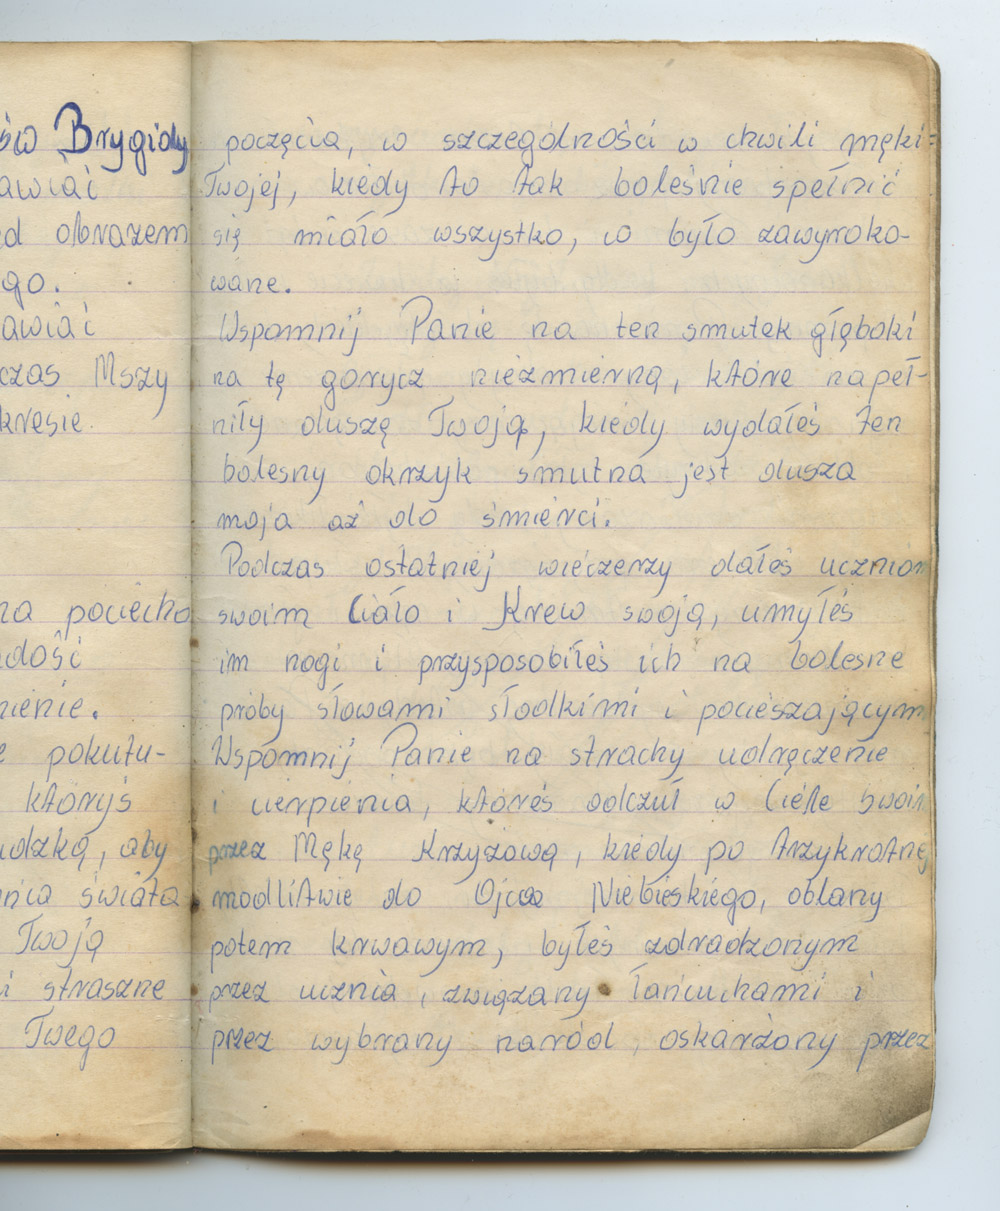 św Brygidy
awiać
d obrazem
go.
awiać
czas Mszy
kresie.
na pociecho
dość
nienie.
e pokutu-
któryś
udzką, aby
ńca świata
Twoją
i straszne
Twego
poczęcia, w szczególności w chwili męki
Twojej, kiedy to tak boleśnie spełnić
się miało wszystko, co było zawyroko-
wane.
Wspomnij Panie na ten smutek głęboki
na tę gorycz niezmierną, które napeł-
niły duszę Twoją, kiedy wydałeś ten
bolesny okrzyk smutna jest dusza
moja aż do śmierci.
Podczas ostatniej wieczerzy dałeś uczniom
swoim Ciało i Krew swoją, umyłeś
im nogi i przysposobiłeś ich na bolesne
próby słowami słodkimi i pocieszającym
Wspomnij Panie na strachy udręczenie
i cierpienia, któreś odczuł w Ciele swoim
przez Mękę Krzyżową, kiedy po trzykrotnej
modlitwie do Ojca Niebieskiego, oblany
potem krwawym, byłeś zdradzonym
przez ucznia, związany łańcuchami i
przez wybrany naród, oskarżony przez